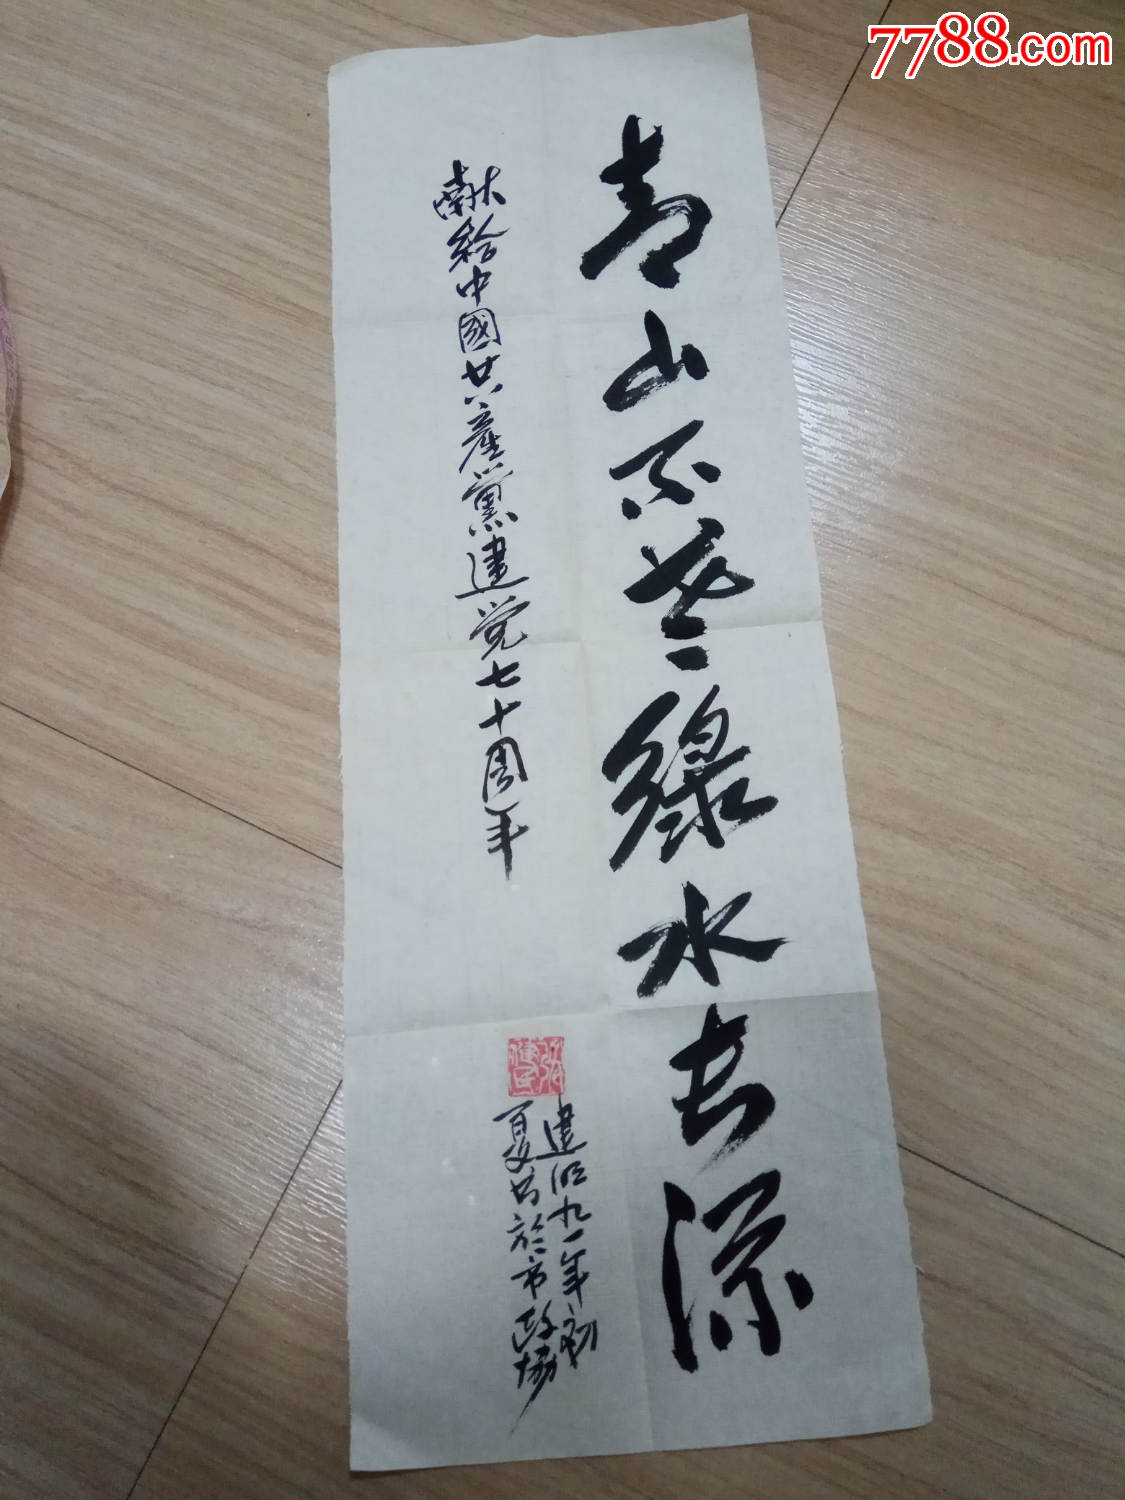 7788.com
青山不老綠水长流
献给中國共產黨建党七十周年
建九一年初
夏书於市政協